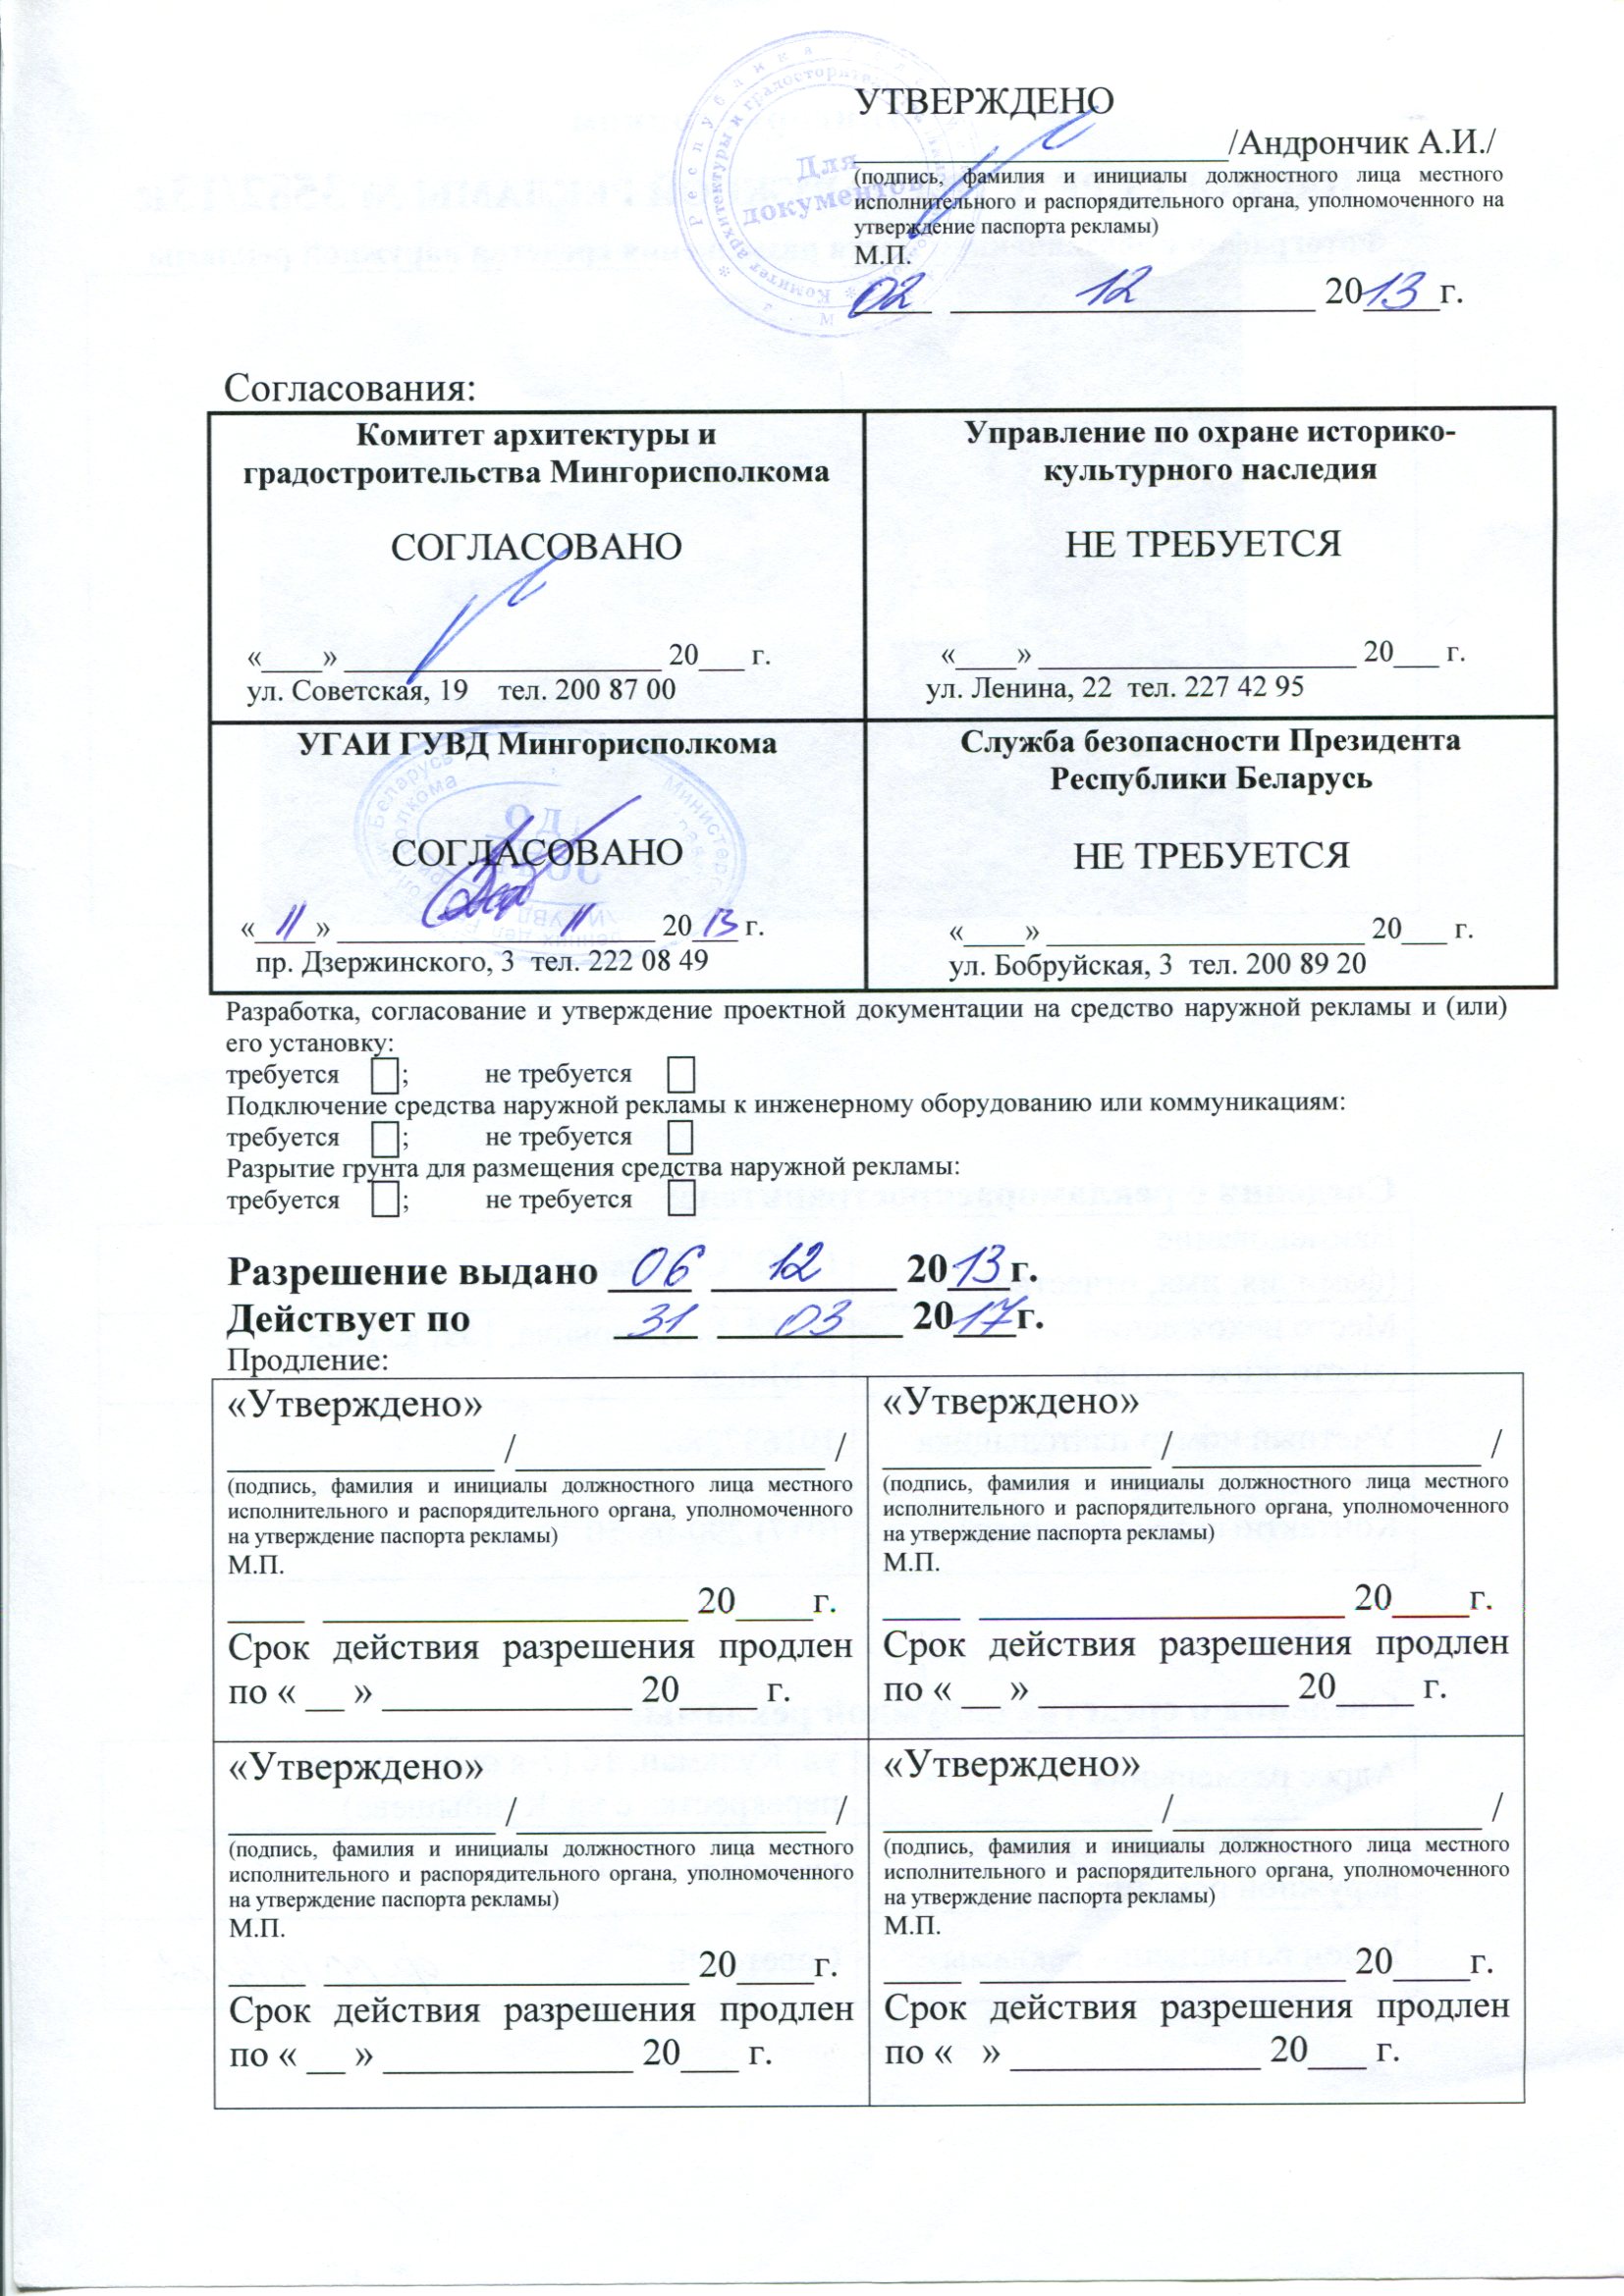 УТВЕРЖДЕНО
____________________/Андрончик А.И./
(подпись, фамилия и инициалы должностного лица местного
исполнительного и распорядительного органа, уполномоченного на
утверждение паспорта рекламы)
М.П.
02 12 2013г.
Для
документов
Согласования:
Комитет архитектуры и
градостроительства Мингорисполкома
СОГЛАСОВАНО
«____» _____________________ 20___ г.
ул. Советская, 19 тел. 200 87 00
Управление по охране историко-
культурного наследия
НЕ ТРЕБУЕТСЯ
«____» _____________________ 20___ г.
ул. Ленина, 22 тел. 227 42 95
УГАИ ГУВД Мингорисполкома
СОГЛАСОВАНО
«11» 11 2013 г.
пр. Дзержинского, 3 тел. 222 08 49
Служба безопасности Президента
Республики Беларусь
НЕ ТРЕБУЕТСЯ
«____» _____________________ 20___ г.
ул. Бобруйская, 3 тел. 200 89 20
Разработка, согласование и утверждение проектной документации на средство наружной рекламы и (или)
его установку:
требуется ; не требуется
Подключение средства наружной рекламы к инженерному оборудованию или коммуникациям:
требуется ; не требуется
Разрытие грунта для размещения средства наружной рекламы:
требуется ; не требуется
Разрешение выдано 06 12 2013г.
Действует по 31 03 2017г.
Продление:
«Утверждено»
______________ /________________ /
(подпись, фамилия и инициалы должностного лица местного
исполнительного и распорядительного органа, уполномоченного
на утверждение паспорта рекламы)
М.П.
____ ___________________ 20____г.
Срок действия разрешения продлен
по « __ » _____________ 20____ г.
«Утверждено»
______________ /________________ /
(подпись, фамилия и инициалы должностного лица местного
исполнительного и распорядительного органа, уполномоченного
на утверждение паспорта рекламы)
М.П.
____ ___________________ 20____г.
Срок действия разрешения продлен
по « __ » _____________ 20____ г.
«Утверждено»
______________ /________________ /
(подпись, фамилия и инициалы должностного лица местного
исполнительного и распорядительного органа, уполномоченного
на утверждение паспорта рекламы)
М.П.
____ ___________________ 20____г.
Срок действия разрешения продлен
по « __ » _____________ 20___ г.
«Утверждено»
______________ /________________ /
(подпись, фамилия и инициалы должностного лица местного
исполнительного и распорядительного органа, уполномоченного
на утверждение паспорта рекламы)
М.П.
____ ___________________ 20____г.
Срок действия разрешения продлен
по « » _____________ 20___ г.